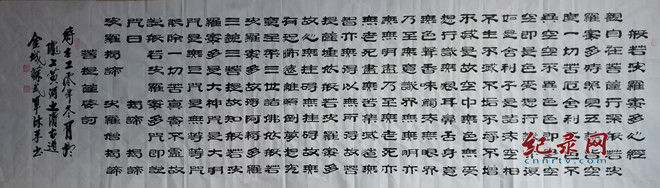 般若波羅蜜多心經
觀自在菩薩行深般若波
羅蜜多時照見五蘊皆空
度一切苦厄舍利子色不
異空空不異色色即是空
空即是色受想行識亦復
如是舍利子是諸法空相
不生不滅不垢不淨不增
不減是故空中無色無受
想行識無眼耳鼻舌身意
無色聲香味觸法無眼界
乃至無意識界無無明
亦無無明盡乃至無老死
亦無老死盡無苦集滅道
無智亦無得以無所得故
菩提薩埵依般若波羅蜜
多故心無罣礙無罣礙故
無有恐怖遠離顛倒夢想
究竟涅槃三世諸佛依般若
波羅蜜多故得阿耨多羅
三藐三菩提故知般若波
羅蜜多是大神咒是大明
咒是無上咒是無等等咒
能除一切苦真實不虛故
說般若波羅蜜多咒即說
咒曰 揭諦 揭諦
波羅揭諦 波羅僧揭諦
菩提薩婆訶
壬辰年冬月於
隴上黃河之濱古道
金城
纪录网
cnnrtv.com